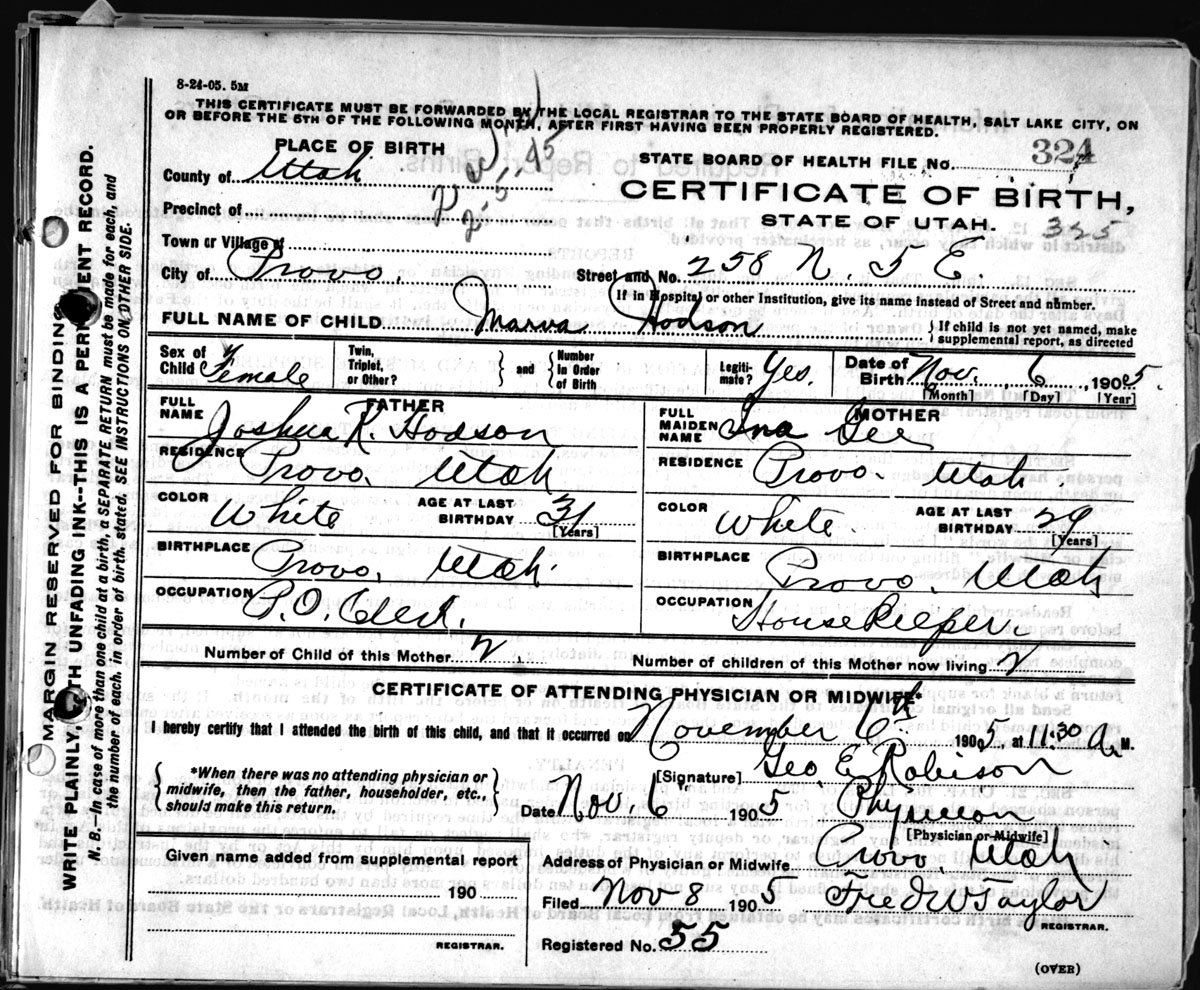 8-24-05. 5M
THIS CERTIFICATE MUST BE FORWARDED BY THE LOCAL REGISTRAR TO THE STATE BOARD OF HEALTH, SALT LAKE CITY, ON
OR BEFORE THE 5TH OF THE FOLLOWING MONTH, AFTER FIRST HAVING BEEN PROPERLY REGISTERED.
PLACE OF BIRTH
STATE BOARD OF HEALTH FILE No. 324
County of Utah
CERTIFICATE OF BIRTH,
Precinct of
STATE OF UTAH. 325
Town or Village of
City of Provo Street and No. 258 N. 5 E.
If in Hospital or other Institution, give its name instead of Street and number.
FULL NAME OF CHILD Marva Hodson } If child is not yet named, make
supplemental report, as directed
Sex of Child Female
Twin, Triplet, or Other? } and { Number In Order of Birth
Legiti- mate? Yes.
Date of Birth Nov. 6, 1905.
[Month] [Day] [Year]
FATHER
FULL NAME Joshua R. Hodson
RESIDENCE Provo. Utah
COLOR White AGE AT LAST BIRTHDAY 31
[Years]
BIRTHPLACE Provo, Utah.
OCCUPATION P.O. Clerk.
MOTHER
FULL MAIDEN NAME Ina Gee
RESIDENCE Provo. Utah.
COLOR White AGE AT LAST BIRTHDAY 29
[Years]
BIRTHPLACE Provo. Utah
OCCUPATION Housekeeper.
Number of Child of this Mother 2. Number of children of this Mother now living 2
CERTIFICATE OF ATTENDING PHYSICIAN OR MIDWIFE*
I hereby certify that I attended the birth of this child, and that it occurred on November 6th 1905, at 11:30 A. M.
{ *When there was no attending physician or
midwife, then the father, householder, etc.,
should make this return. }
[Signature] Geo. E. Robison
Date Nov. 6 1905 Physician
[Physician or Midwife]
Given name added from supplemental report
190
REGISTRAR.
Address of Physician or Midwife Provo. Utah
Filed Nov 8 1905 Fred W Taylor
REGISTRAR.
Registered No. 55
(OVER)
MARGIN RESERVED FOR BINDING
WRITE PLAINLY, WITH UNFADING INK--THIS IS A PERMANENT RECORD.
N. B.--In case of more than one child at a birth, a SEPARATE RETURN must be made for each, and
the number of each, in order of birth, stated. SEE INSTRUCTIONS ON OTHER SIDE.